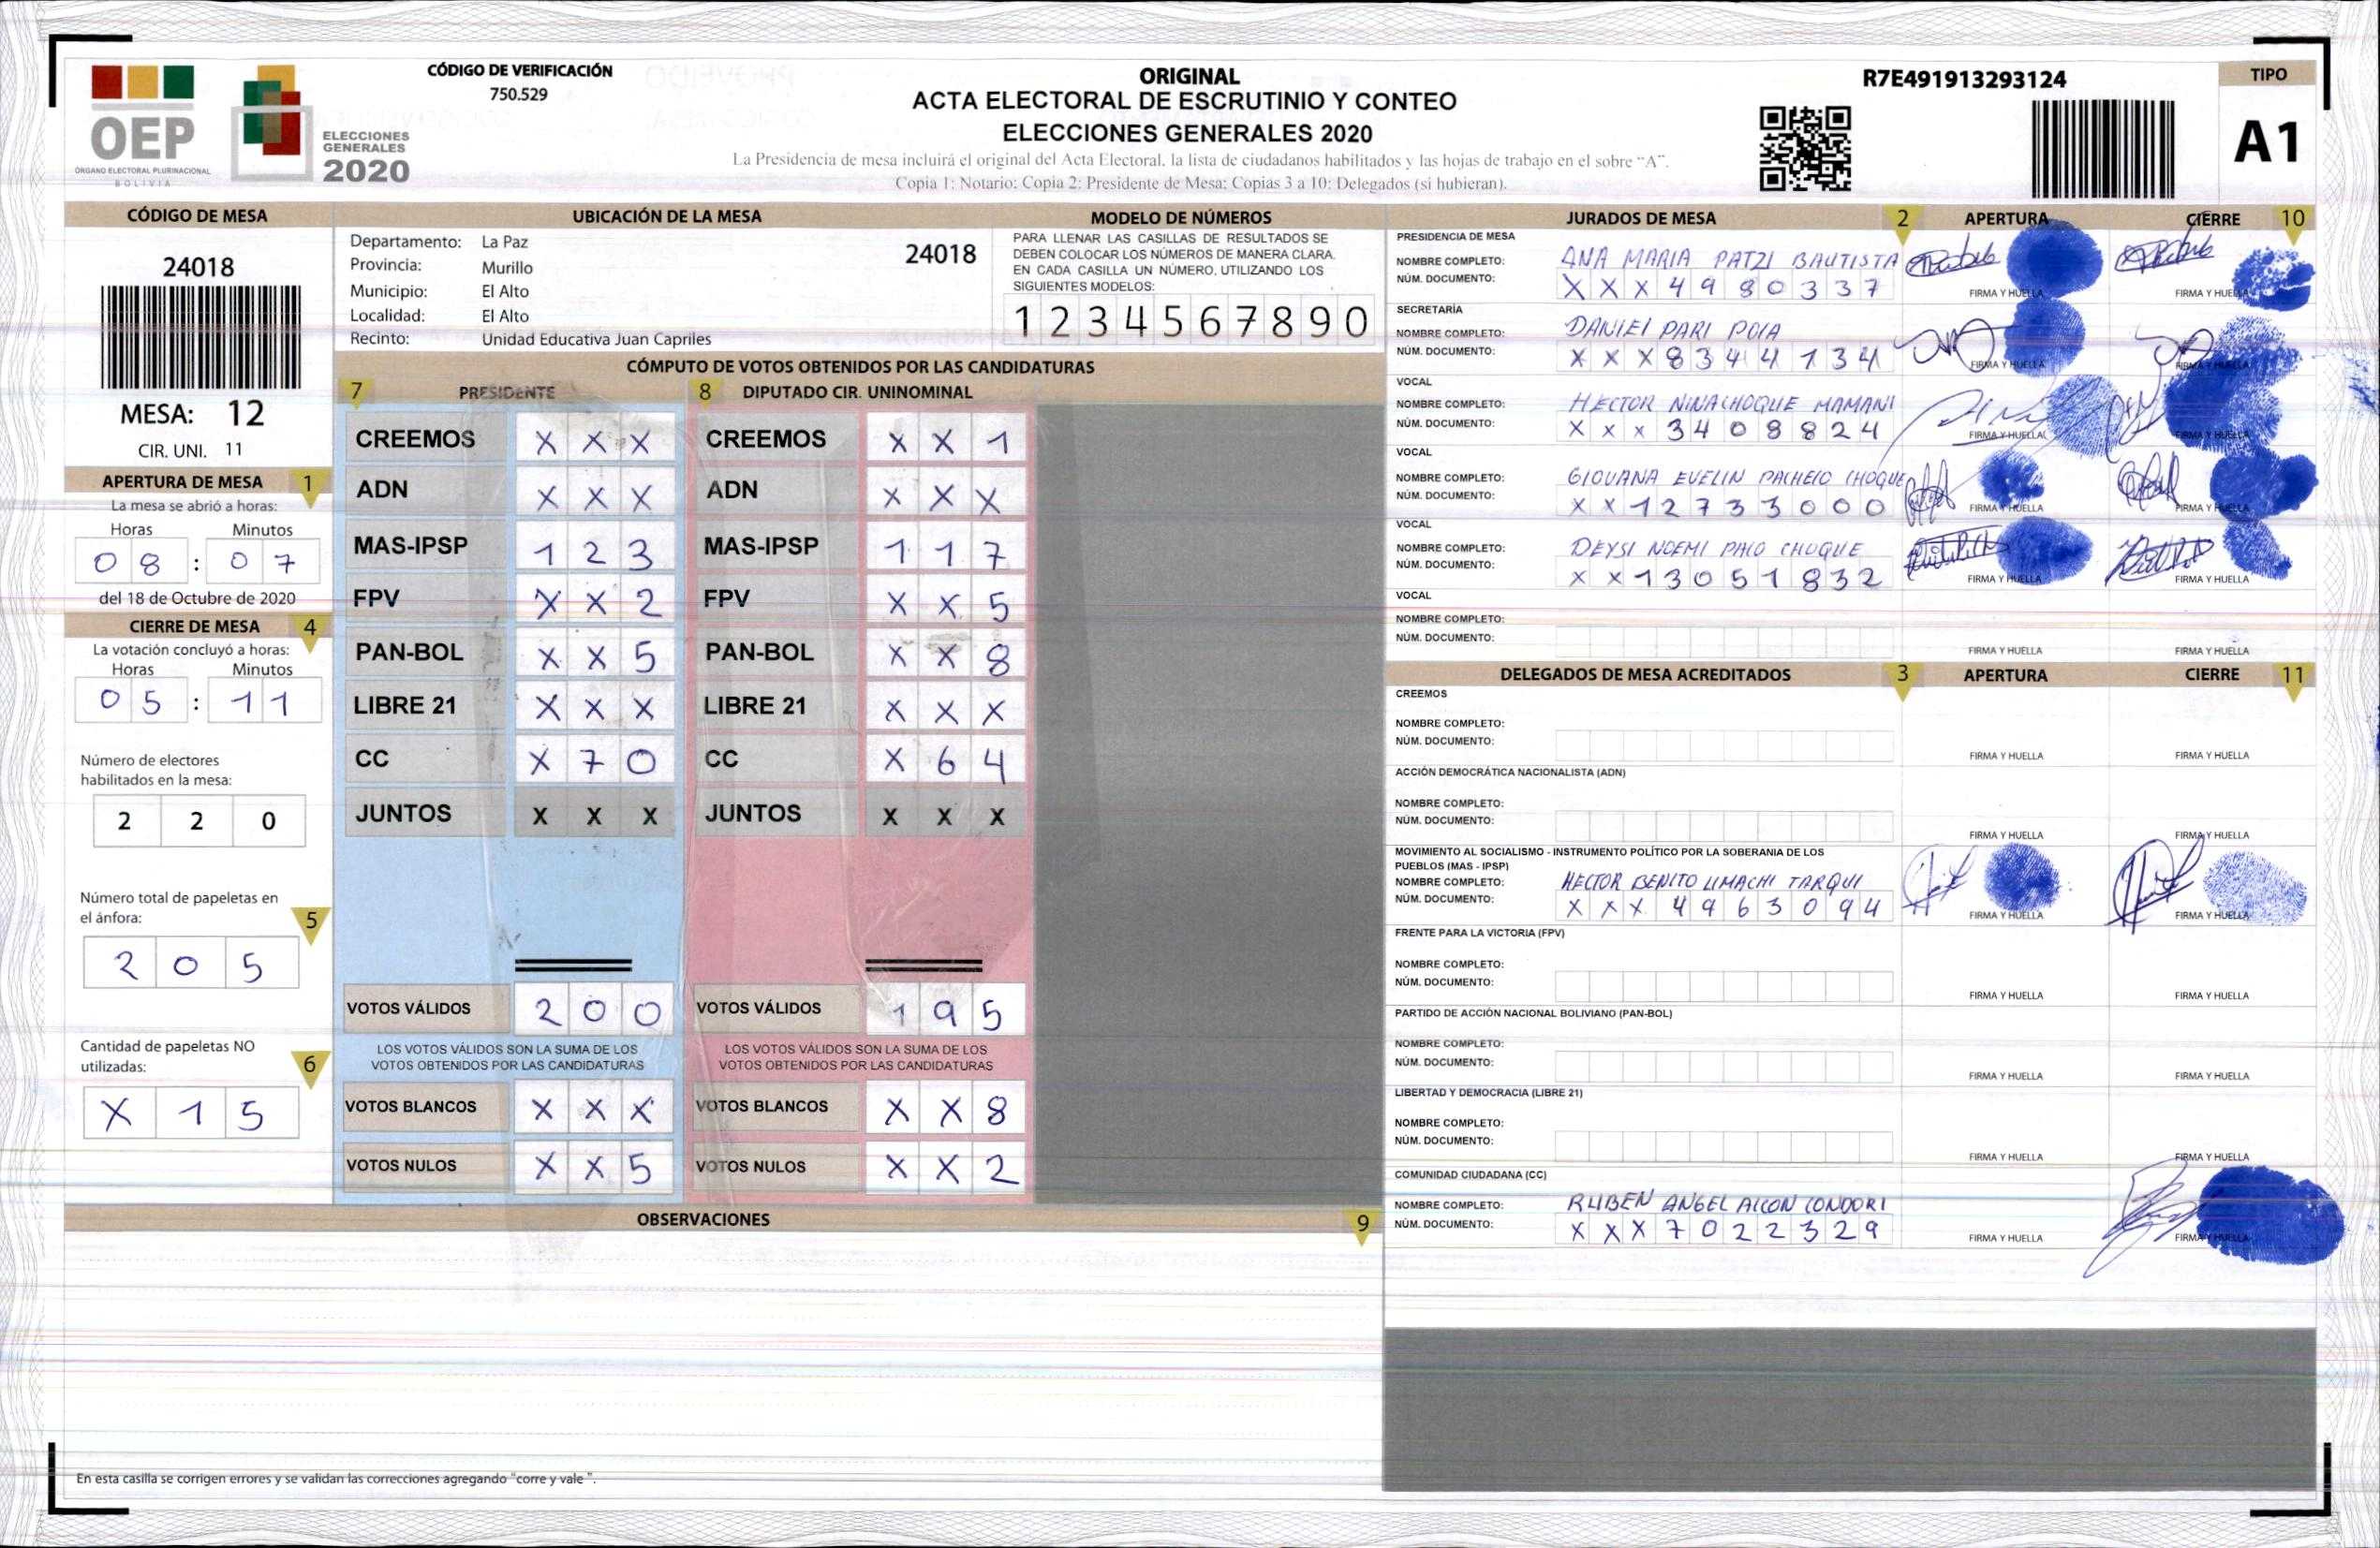 OEP
ÓRGANO ELECTORAL PLURINACIONAL
BOLIVIA
ELECCIONES
GENERALES
2020
CÓDIGO DE VERIFICACIÓN
750.529
ORIGINAL
ACTA ELECTORAL DE ESCRUTINIO Y CONTEO
ELECCIONES GENERALES 2020
La Presidencia de mesa incluirá el original del Acta Electoral, la lista de ciudadanos habilitados y las hojas de trabajo en el sobre "A".
Copia 1: Notario; Copia 2: Presidente de Mesa; Copias 3 a 10: Delegados (si hubieran).
R7E491913293124
TIPO
A1
CÓDIGO DE MESA
24018
MESA: 12
CIR. UNI. 11
APERTURA DE MESA 1
La mesa se abrió a horas:
Horas Minutos
0 8 : 0 7
del 18 de Octubre de 2020
CIERRE DE MESA 4
La votación concluyó a horas:
Horas Minutos
0 5 : 1 1
Número de electores
habilitados en la mesa:
2 2 0
Número total de papeletas en
el ánfora: 5
2 0 5
Cantidad de papeletas NO
utilizadas: 6
X 1 5
UBICACIÓN DE LA MESA
Departamento: La Paz
24018
Provincia: Murillo
Municipio: El Alto
Localidad: El Alto
Recinto: Unidad Educativa Juan Capriles
MODELO DE NÚMEROS
PARA LLENAR LAS CASILLAS DE RESULTADOS SE
DEBEN COLOCAR LOS NÚMEROS DE MANERA CLARA.
EN CADA CASILLA UN NÚMERO, UTILIZANDO LOS
SIGUIENTES MODELOS:
1 2 3 4 5 6 7 8 9 0
CÓMPUTO DE VOTOS OBTENIDOS POR LAS CANDIDATURAS
7 PRESIDENTE 8 DIPUTADO CIR. UNINOMINAL
CREEMOS X X X CREEMOS X X 1
ADN X X X ADN X X X
MAS-IPSP 1 2 3 MAS-IPSP 1 1 7
FPV X X 2 FPV X X 5
PAN-BOL X X 5 PAN-BOL X X 8
LIBRE 21 X X X LIBRE 21 X X X
CC X 7 0 CC X 6 4
JUNTOS X X X JUNTOS X X X
VOTOS VÁLIDOS 2 0 0 VOTOS VÁLIDOS 1 9 5
LOS VOTOS VÁLIDOS SON LA SUMA DE LOS LOS VOTOS VÁLIDOS SON LA SUMA DE LOS
VOTOS OBTENIDOS POR LAS CANDIDATURAS VOTOS OBTENIDOS POR LAS CANDIDATURAS
VOTOS BLANCOS X X X VOTOS BLANCOS X X 8
VOTOS NULOS X X 5 VOTOS NULOS X X 2
OBSERVACIONES 9
En esta casilla se corrigen errores y se validan las correcciones agregando "corre y vale".
JURADOS DE MESA 2 APERTURA CIERRE 10
PRESIDENCIA DE MESA
NOMBRE COMPLETO: ANA MARIA PATZI BAUTISTA
NÚM. DOCUMENTO: X X X 4 9 8 0 3 3 7
FIRMA Y HUELLA FIRMA Y HUELLA
SECRETARÍA
NOMBRE COMPLETO: DANIEl PARI POlA
NÚM. DOCUMENTO: X X X 8 3 4 4 1 3 4
FIRMA Y HUELLA FIRMA Y HUELLA
VOCAL
NOMBRE COMPLETO: HECTOR NINACHOQUE MAMANI
NÚM. DOCUMENTO: X X X 3 4 0 8 8 2 4
FIRMA Y HUELLA FIRMA Y HUELLA
VOCAL
NOMBRE COMPLETO: GIOVANA EVELIN PACHECO CHOQUE
NÚM. DOCUMENTO: X X 1 2 7 3 3 0 0 0
FIRMA Y HUELLA FIRMA Y HUELLA
VOCAL
NOMBRE COMPLETO: DEYSI NOEMI CHOQUE
NÚM. DOCUMENTO: X X 1 3 0 5 1 8 3 2
FIRMA Y HUELLA FIRMA Y HUELLA
VOCAL
NOMBRE COMPLETO:
NÚM. DOCUMENTO:
FIRMA Y HUELLA FIRMA Y HUELLA
DELEGADOS DE MESA ACREDITADOS 3 APERTURA CIERRE 11
CREEMOS
NOMBRE COMPLETO:
NÚM. DOCUMENTO:
FIRMA Y HUELLA FIRMA Y HUELLA
ACCIÓN DEMOCRÁTICA NACIONALISTA (ADN)
NOMBRE COMPLETO:
NÚM. DOCUMENTO:
FIRMA Y HUELLA FIRMA Y HUELLA
MOVIMIENTO AL SOCIALISMO - INSTRUMENTO POLÍTICO POR LA SOBERANIA DE LOS
PUEBLOS (MAS - IPSP)
NOMBRE COMPLETO: HECTOR BENITO LIMACHI TARQUI
NÚM. DOCUMENTO: X X X 4 9 6 3 0 9 4
FIRMA Y HUELLA FIRMA Y HUELLA
FRENTE PARA LA VICTORIA (FPV)
NOMBRE COMPLETO:
NÚM. DOCUMENTO:
FIRMA Y HUELLA FIRMA Y HUELLA
PARTIDO DE ACCIÓN NACIONAL BOLIVIANO (PAN-BOL)
NOMBRE COMPLETO:
NÚM. DOCUMENTO:
FIRMA Y HUELLA FIRMA Y HUELLA
LIBERTAD Y DEMOCRACIA (LIBRE 21)
NOMBRE COMPLETO:
NÚM. DOCUMENTO:
FIRMA Y HUELLA FIRMA Y HUELLA
COMUNIDAD CIUDADANA (CC)
NOMBRE COMPLETO: RUBEN ANGEL ALCON CONDORI
NÚM. DOCUMENTO: X X X 7 0 2 2 3 2 9
FIRMA Y HUELLA FIRMA Y HUELLA